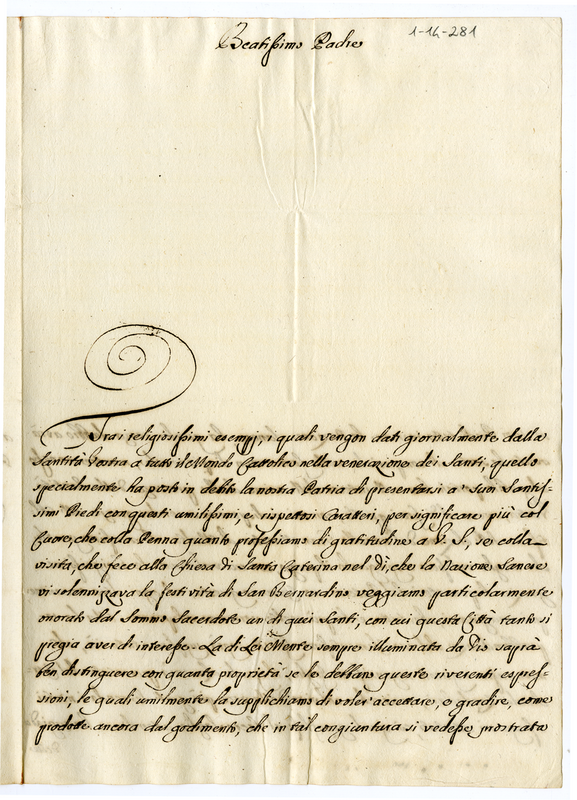 1-14-281
Beatissimo Padre
Tra i religiosissimi esempj, i quali vengon dati giornalmente dalla
Santità Vostra a tutto il Mondo Cattolico nella venerazione dei Santi, quello
specialmente ha posto in debito la nostra Patria di presentarsi a' suoi Santis-
simi Piedi con questi umilissimi, e rispettosi Caratteri, per significare più col
Cuore, che colla Penna quanto professiamo di gratitudine a V. S., se colla
visita, che fece alla Chiesa di Santa Caterina nel dì, che la Nazione Sanese
vi solennizava la festività di San Bernardino veggiamo particolarmente
onorato dal Sommo Sacerdote un di quei Santi, con cui questa Città tanto si
pregia aver d'interesse. La di Lei Mente sempre illuminata da Dio saprà
ben distinguere con quanta proprietà se le debbano queste riverenti espres-
sioni, le quali umilmente la supplichiamo di voler' accettare, e gradire, come
prodotte ancora dal godimento, che in tal congiuntura si vedesse prostrata